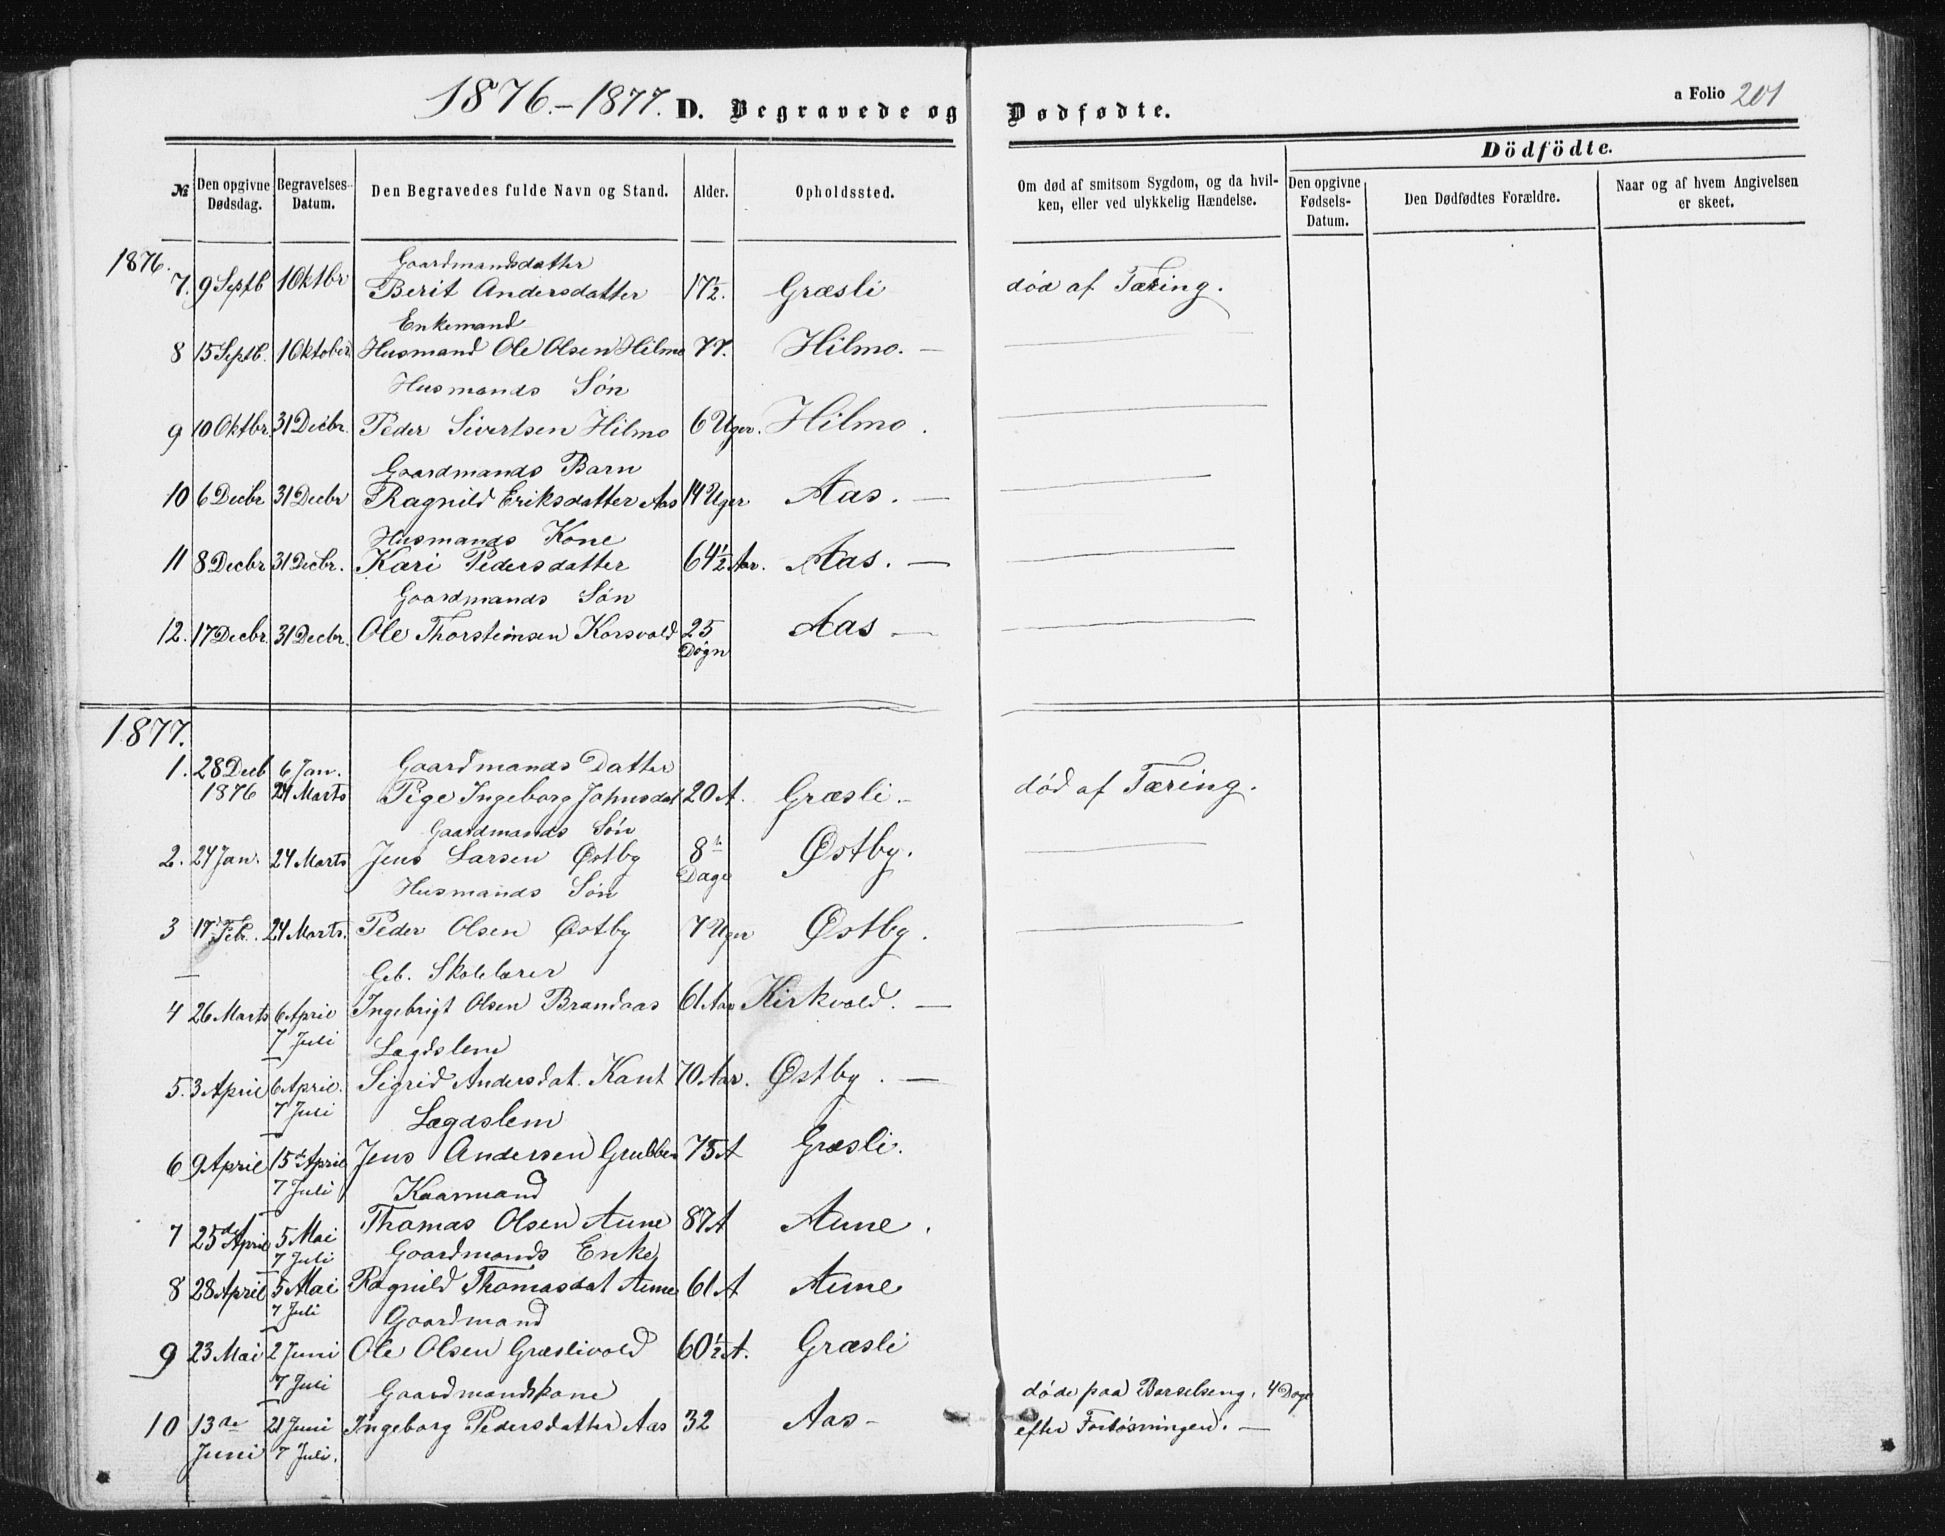 1876.-1877. D. Begravede og Dødfødte. a Folio 201
Dödfödte.
№ Den opgivne Dødsdag. Begravelses-Datum. Den Begravedes fulde Navn og Stand. Alder. Opholdssted. Om død af smitsom Sygdom, og da hvilken, eller ved ulykkelig Hændelse. Den opgivne Fødsels-Datum. Den Dødfødtes Forældre. Naar og af hvem Angivelsen er skeet.
1876. Gaardmandsdatter
7. 9 Septb 1 Oktbr Berit Andersdatter 17½. Græsli død af Tæring.
Enkemand
8 15 Septb. 1 Oktober Husmand Ole Olsen Hilmo 77. Hilmo. —
Husmands Søn
9 10 Oktbr. 31 Decbr. Peder Sivertsen Hilmo 6 Uger. Hilmo.
Gaardmands Barn
10 6 Decbr 31 Decbr Ragnild Eriksdatter Aas 14 Uger Aas. —
Husmands Kone
11 8 Decbr 31 Decbr. Kari Pedersdatter 64½ Aar. Aas. —
Gaardmands Søn
12. 17 Decbr. 31 Decbr. Ole Thorsteinsen Korsvold 25 Aas —
Døgn
1877.
1. 28 Decb 6 Jan. Gaardmands Datter
1876 24 Marts Pige Ingeborg Johnsdat 20 A. Græsli - død af Tæring.
Gaardmands Søn
2. 24 Jan. 24 Marts Jens Larsen Østby 8 Østby.
Dage
Husmands Søn
3 17 Feb. 24 Marts. Peder Olsen Østby 7 Uger Østby.
— Skolelærer
4 26 Marts 6 April Ingebrigt Olsen Brandaas 61 Aar Kirkvold. —
7 Juli
Lægdslem
5. 3 April 6 April. Sigrid Andersdat. Kant 70 Aar. Østby. —
7 Juli
Lægdslem
6 9 April 15de April Jens Andersen Grubben 75 A Græsli.
7 Juli
Kaarmand
7 25de April 5 Mai Thomas Olsen Aune 87 A Aune.
7 Juli
Gaardmands Enke
8 28 April 5 Mai Ragnild Thomasdat Aune 61 A Aune
7 Juli
Gaardmand
9 23 Mai 2 Juni Ole Olsen Græslivold 60½ A. Græsli
7 Juli
Gaardmandskone døde paa Barselseng, 4 Dage
10 13de 21 Juni Ingeborg Pedersdatter Aas 32 Aas - efter Forløsningen. —
Juni 7 Juli.